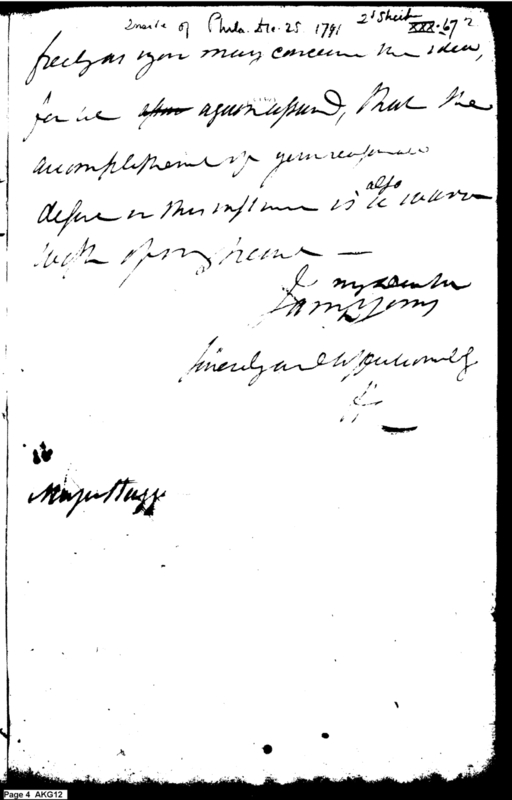 of Phila. Dec. 25 1791 2d Sheet XXX.67 2
freely as you may conceive the idea,
for be again assured, that the
accomplishment of your
desire in this instance is also the warm
wish of my heart —
I my dear Sir
am Yours
sincerely and affectionately
Major
Page 4 AKG12